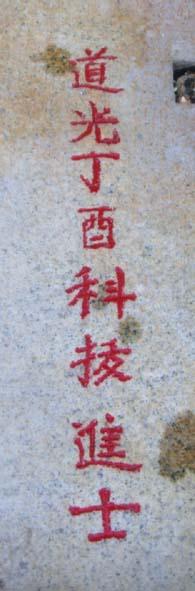 道光丁酉科拔進士